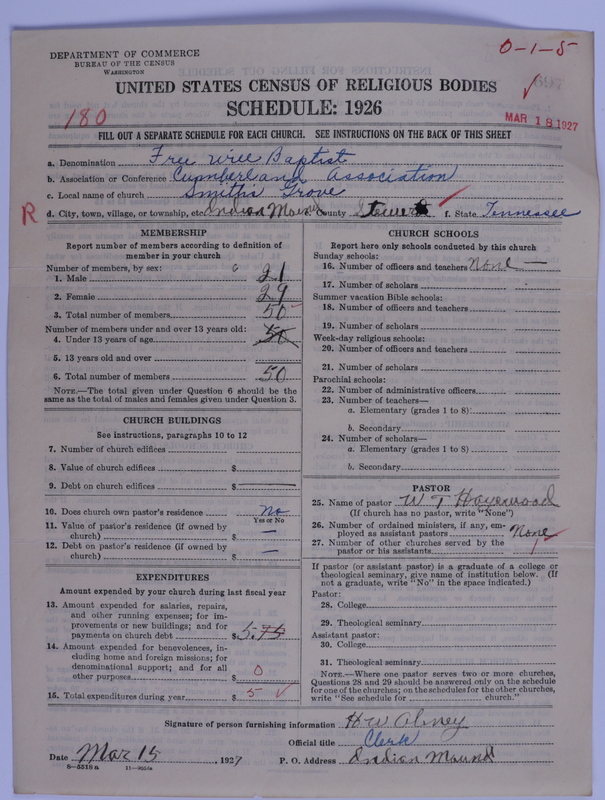 DEPARTMENT OF COMMERCE
BUREAU OF THE CENSUS
WASHINGTON
0-1-5
UNITED STATES CENSUS OF RELIGIOUS BODIES
SCHEDULE: 1926
180
MAR 18 1927
FILL OUT A SEPARATE SCHEDULE FOR EACH CHURCH. SEE INSTRUCTIONS ON THE BACK OF THIS SHEET
a. Denomination Free Will Baptist
b. Association or Conference Cumberland Association
c. Local name of church Smiths Grove
R d. City, town, village, or township, etc. Indian Mound e. County Stewart f. State Tennessee
MEMBERSHIP
Report number of members according to definition of member in your church
Number of members, by sex:
1. Male 21
2. Female 29
3. Total number of members 50
Number of members under and over 13 years old:
4. Under 13 years of age 50
5. 13 years old and over
6. Total number of members 50
NOTE.—The total given under Question 6 should be the same as the total of males and females given under Question 3.
CHURCH BUILDINGS
See instructions, paragraphs 10 to 12
7. Number of church edifices
8. Value of church edifices $
9. Debt on church edifices $
10. Does church own pastor's residence No
Yes or No
11. Value of pastor's residence (if owned by church) $ —
12. Debt on pastor's residence (if owned by church) $ —
EXPENDITURES
Amount expended by your church during last fiscal year
13. Amount expended for salaries, repairs, and other running expenses; for improvements or new buildings; and for payments on church debt $ 5.75
14. Amount expended for benevolences, including home and foreign missions; for denominational support; and for all other purposes $ 0
15. Total expenditures during year $ 5
CHURCH SCHOOLS
Report here only schools conducted by this church
Sunday schools:
16. Number of officers and teachers None —
17. Number of scholars
Summer vacation Bible schools:
18. Number of officers and teachers
19. Number of scholars
Week-day religious schools:
20. Number of officers and teachers
21. Number of scholars
Parochial schools:
22. Number of administrative officers
23. Number of teachers—
a. Elementary (grades 1 to 8):
b. Secondary
24. Number of scholars—
a. Elementary (grades 1 to 8)
b. Secondary
PASTOR
25. Name of pastor W T
(If church has no pastor, write "None")
26. Number of ordained ministers, if any, employed as assistant pastors None
27. Number of other churches served by the pastor or his assistants
If pastor (or assistant pastor) is a graduate of a college or theological seminary, give name of institution below. (If not a graduate, write "No" in the space indicated.)
Pastor:
28. College
29. Theological seminary
Assistant pastor:
30. College
31. Theological seminary
NOTE.—Where one pastor serves two or more churches, Questions 28 and 29 should be answered only on the schedule for one of the churches; on the schedules for the other churches, write "See schedule for church."
Signature of person furnishing information H W Abney
Official title Clerk
Date Mar 15, 1927 P. O. Address Indian Mound
8—5518a 11—9054a